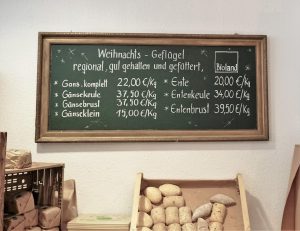 Weihnachts - Geflügel
regional, gut gehalten und gefüttert,
Bioland
* Gans, komplett 22,00 €/Kg
* Gänsekeule 37,50 €/Kg
* Gänsebrust 37,50 €/Kg
* Gänseklein 15,00 €/Kg
* Ente 20,00 €/Kg
* Entenkeule 34,00 €/Kg
* Entenbrust 39,50 €/Kg